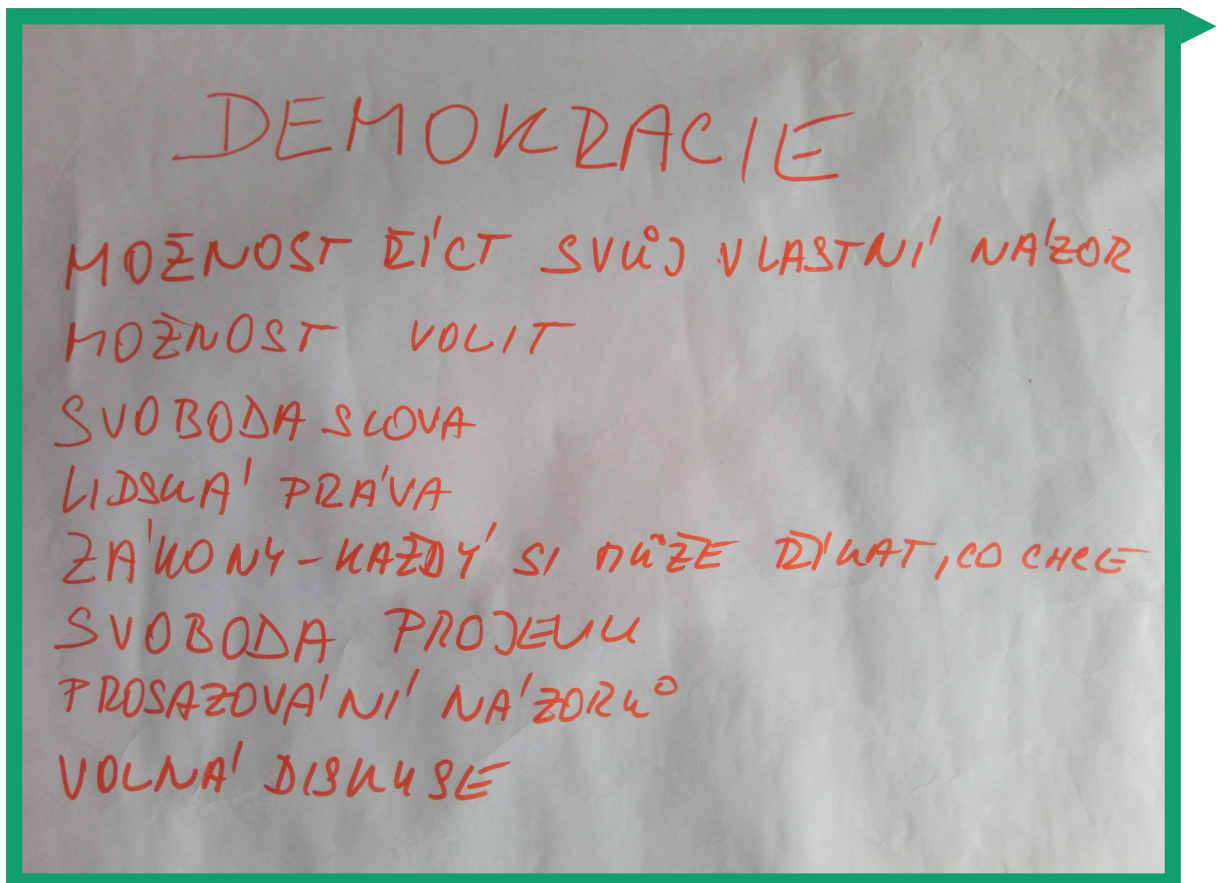 DEMOKRACIE
MOŽNOST ŘÍCT SVŮJ VLASTNÍ NÁZOR
MOŽNOST VOLIT
SVOBODA SLOVA
LIDSKÁ PRÁVA
ZÁKONY - KAŽDÝ SI MŮŽE ŘÍKAT, CO CHCE
SVOBODA PROJEVU
PROSAZOVÁNÍ NÁZORŮ
VOLNÁ DISKUSE